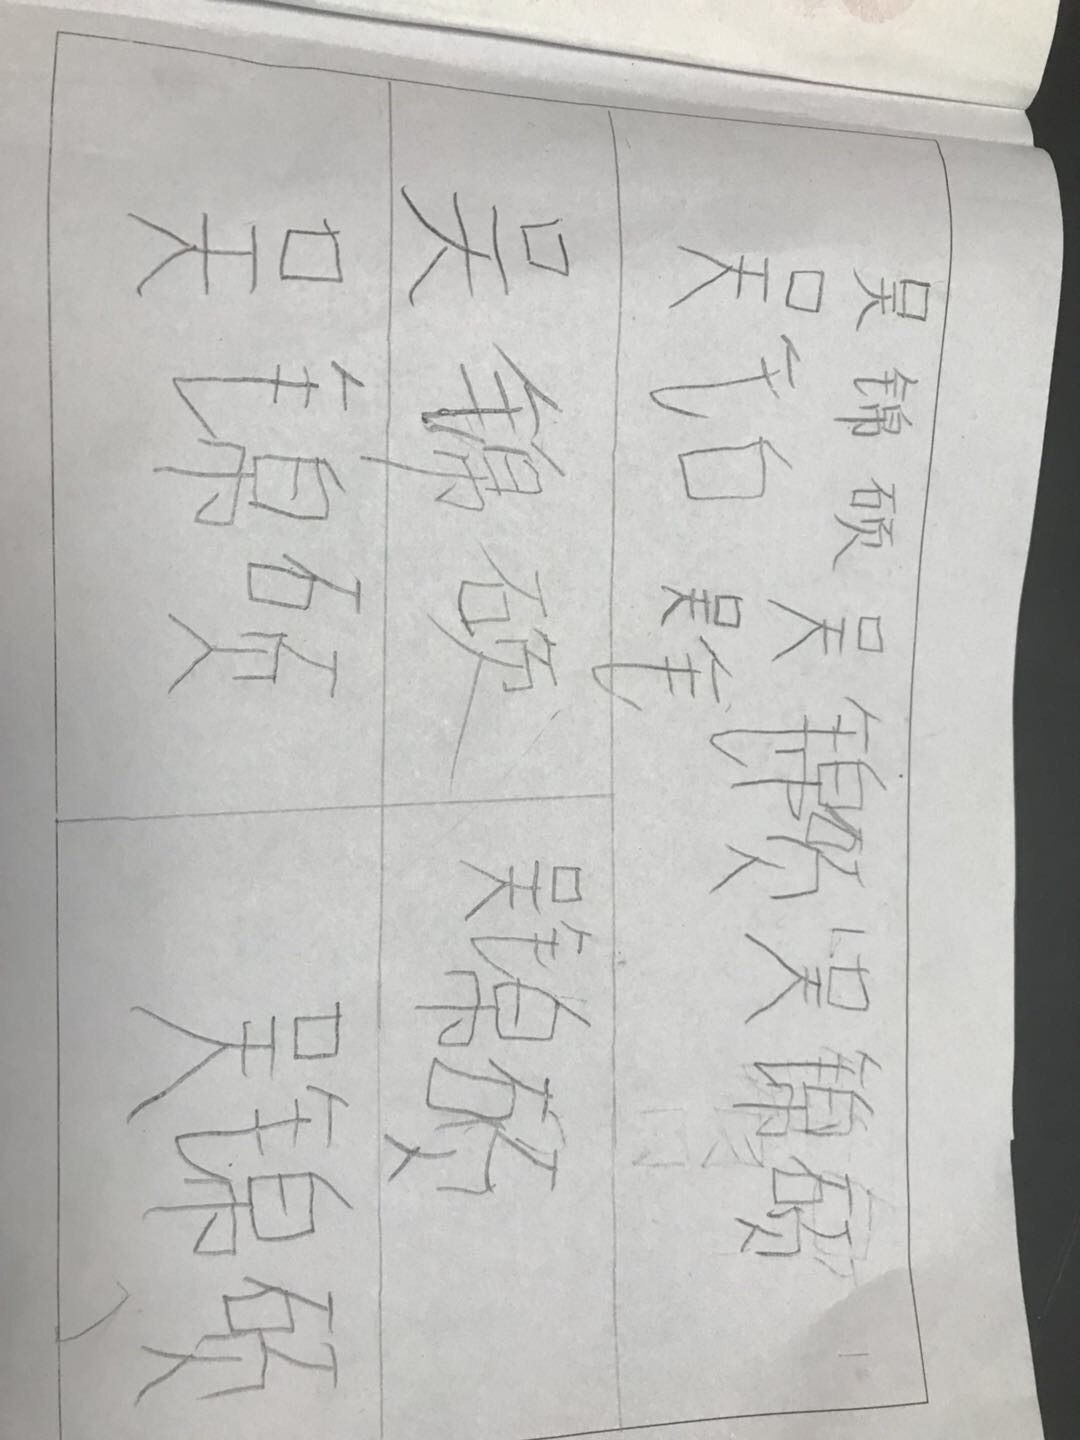 吴锦硕 吴锦硕 吴锦硕
吴 吴
吴锦硕 吴锦硕
吴锦硕 吴锦硕